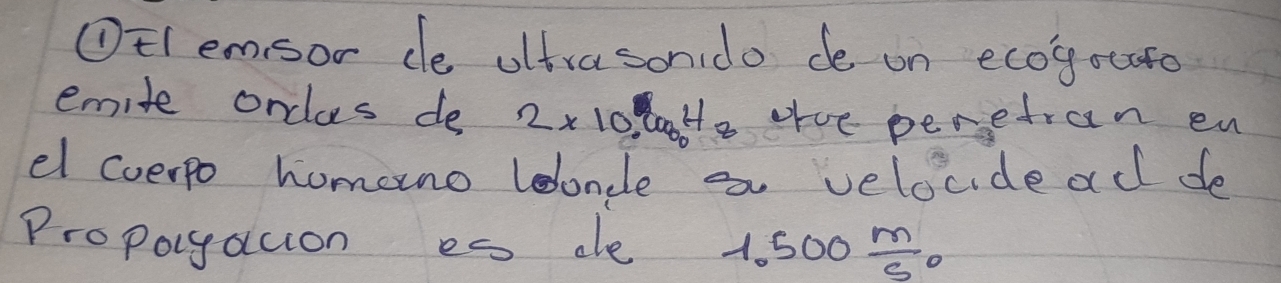 ① El emisor de ultrasonido de un ecógrafo
emite ondas de 2x10. Hz que penetran en
el cuerpo humano donde su velocidad de
Propagacion es de 1.500 m/s.